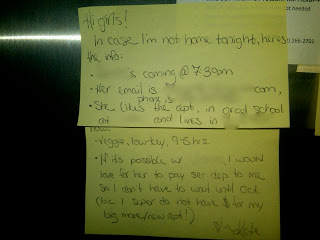 not needed
266-2700
Hi girls!
In case I'm not home tonight, here's
the info:
• is coming @ 7:30pm
• Her email is .com,
phone is
• She likes the apt, in grad school
at and lives in
now.
• Veggie, low key, 9-5 hrs.
• If it's possible w/ , I would
love for her to pay sec dep to me
so I don't have to wait until Oct.
(b/c I super do not have $ for my
big move/new apt!)